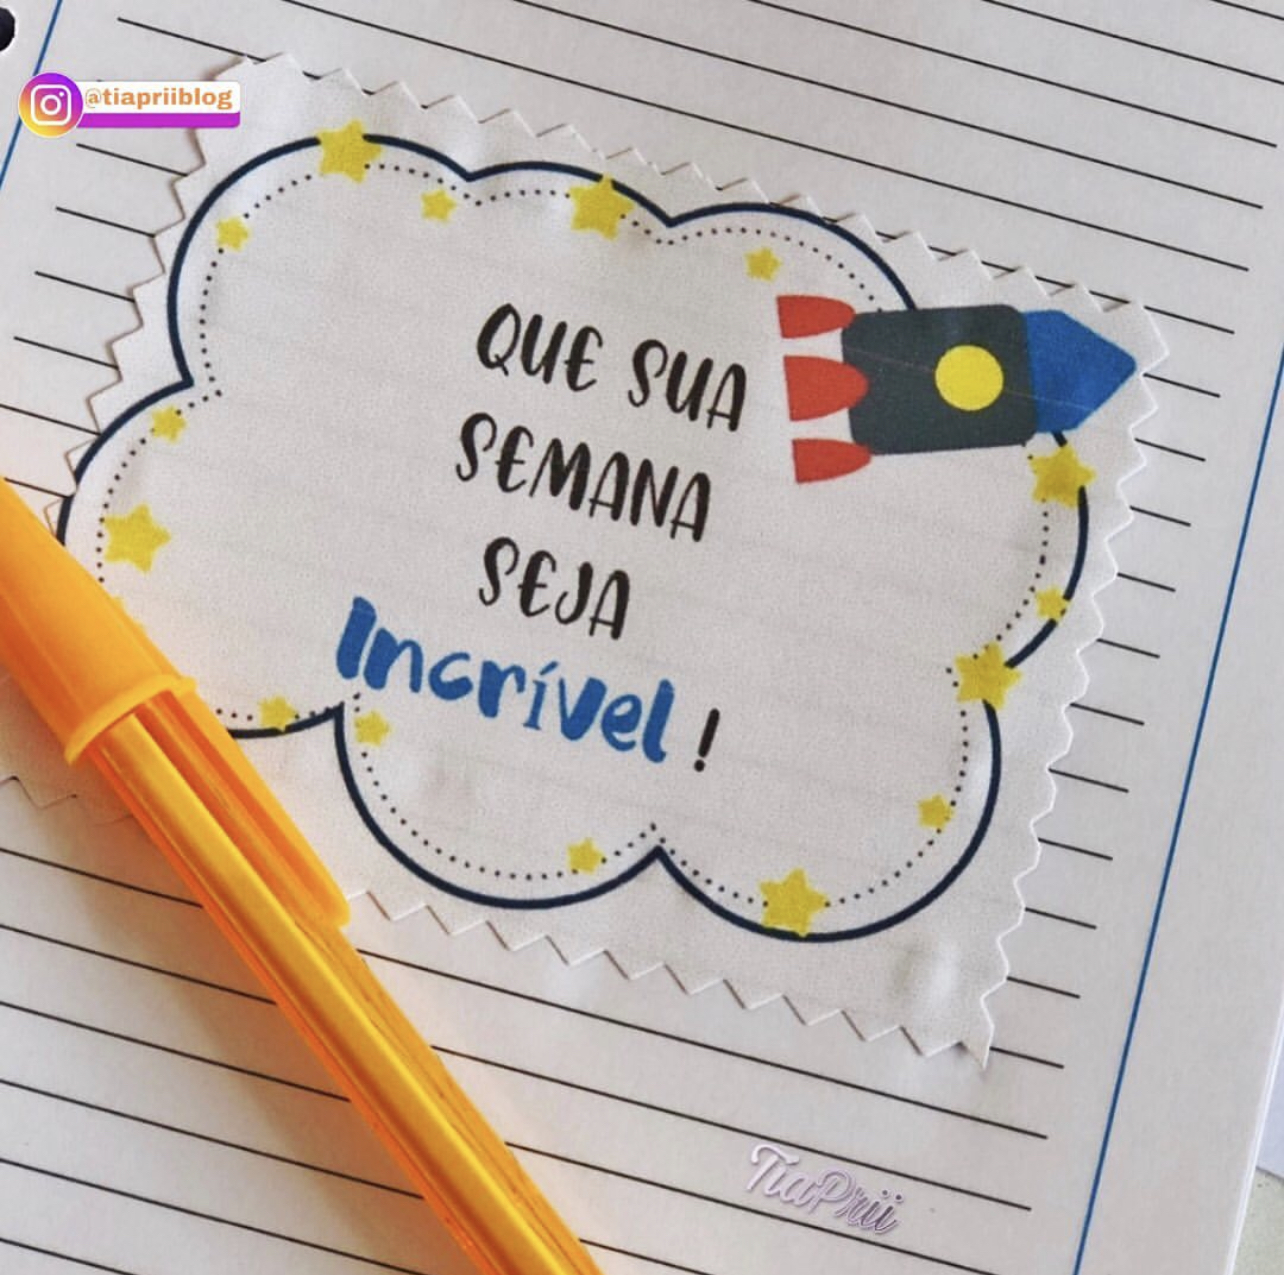 @tiapriiblog
QUE SUA
SEMANA
SEJA
Incrível !
TiaPrii